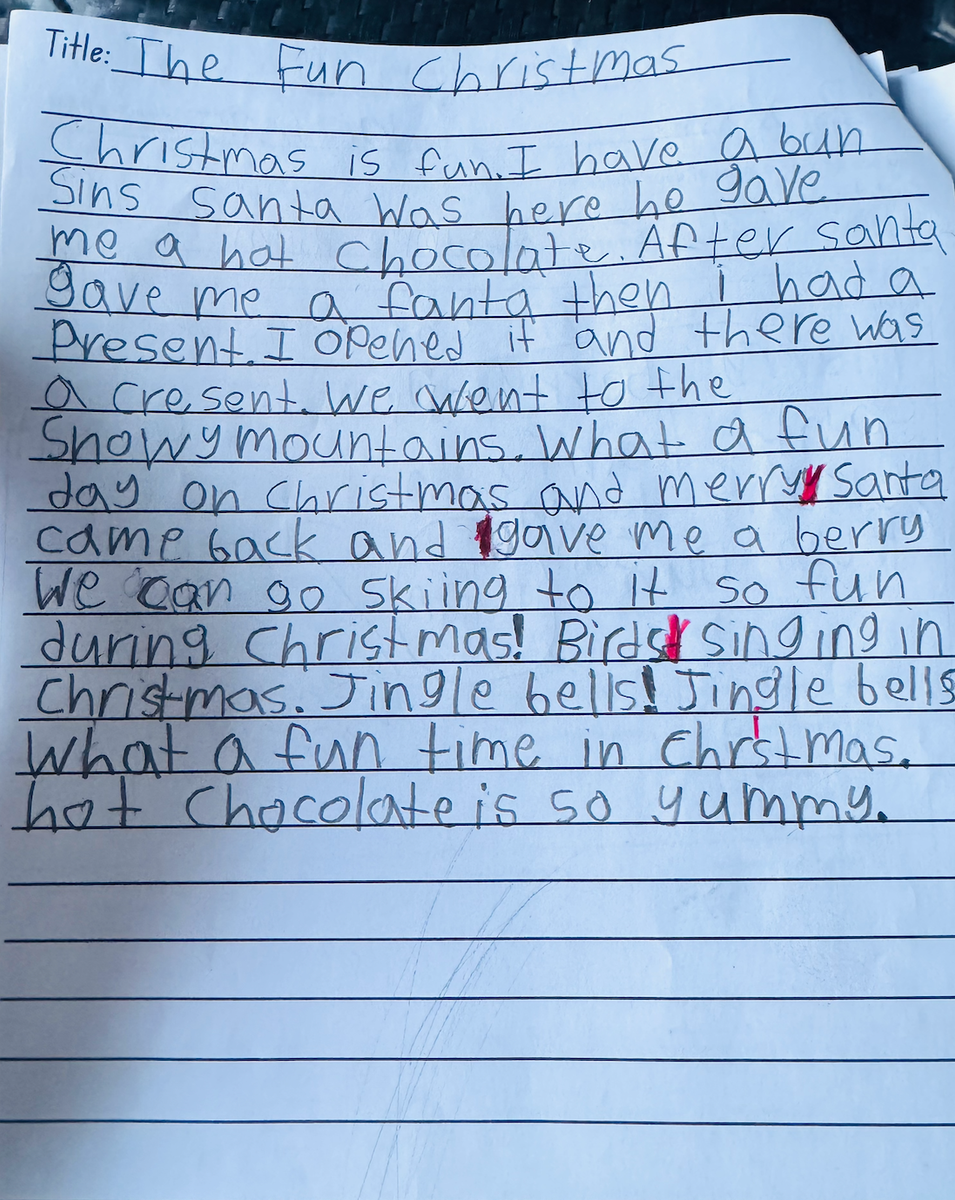 Title: The Fun Christmas
Christmas is fun. I have a bun
Sins santa was here he gave
me a hot chocolate. After santa
gave me a fanta then i had a
Present. I opened it and there was
a cresent. We went to the
Snowy mountains. What a fun
day on christmas and merry Santa
came back and gave me a berry
We can go skiing to it so fun
during Christmas! Birds singing in
Christmas. Jingle bells! Jingle bells
What a fun time in Christmas.
hot Chocolate is so yummy.